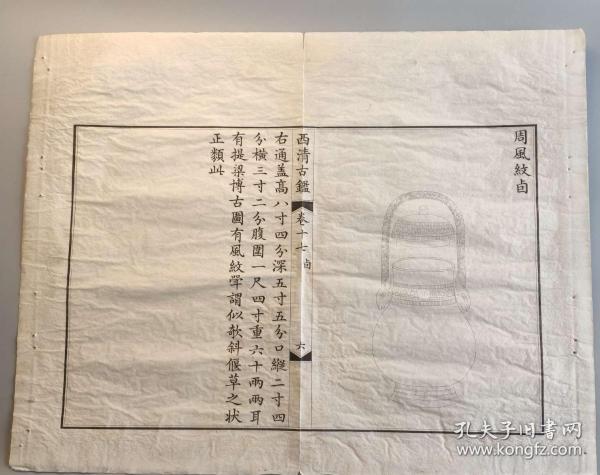 周風紋卣
西清古鑑
卷十七 卣
六
右通蓋高八寸四分深五寸五分口縱二寸四
分橫三寸二分腹圍一尺四寸重六十兩兩耳
有提梁博古圖有風紋斝謂似欹斜偃草之状
正類此
孔夫子旧书网
www.kongfz.com